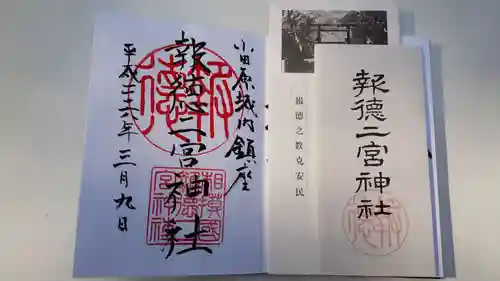 小田原城内鎮座
報徳二宮神社
平成二十六年三月九日
報徳
相模國
報徳二
宮神社
報德二宮神社
報徳
報徳之教克安民